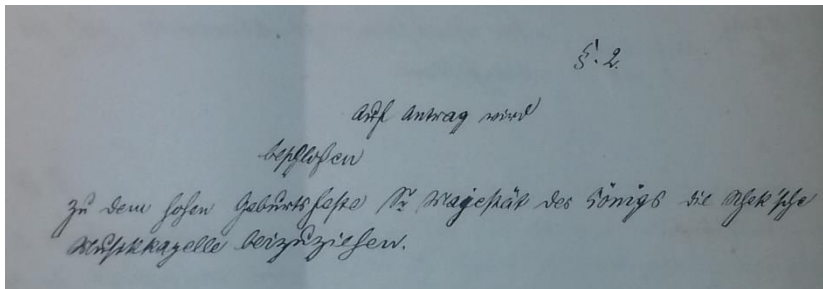 §. 2.
Auf Antrag wird
beschlossen
zu dem hohen Geburtsfeste Sr Majestät des Königs die
Musikkapelle beizuziehen.